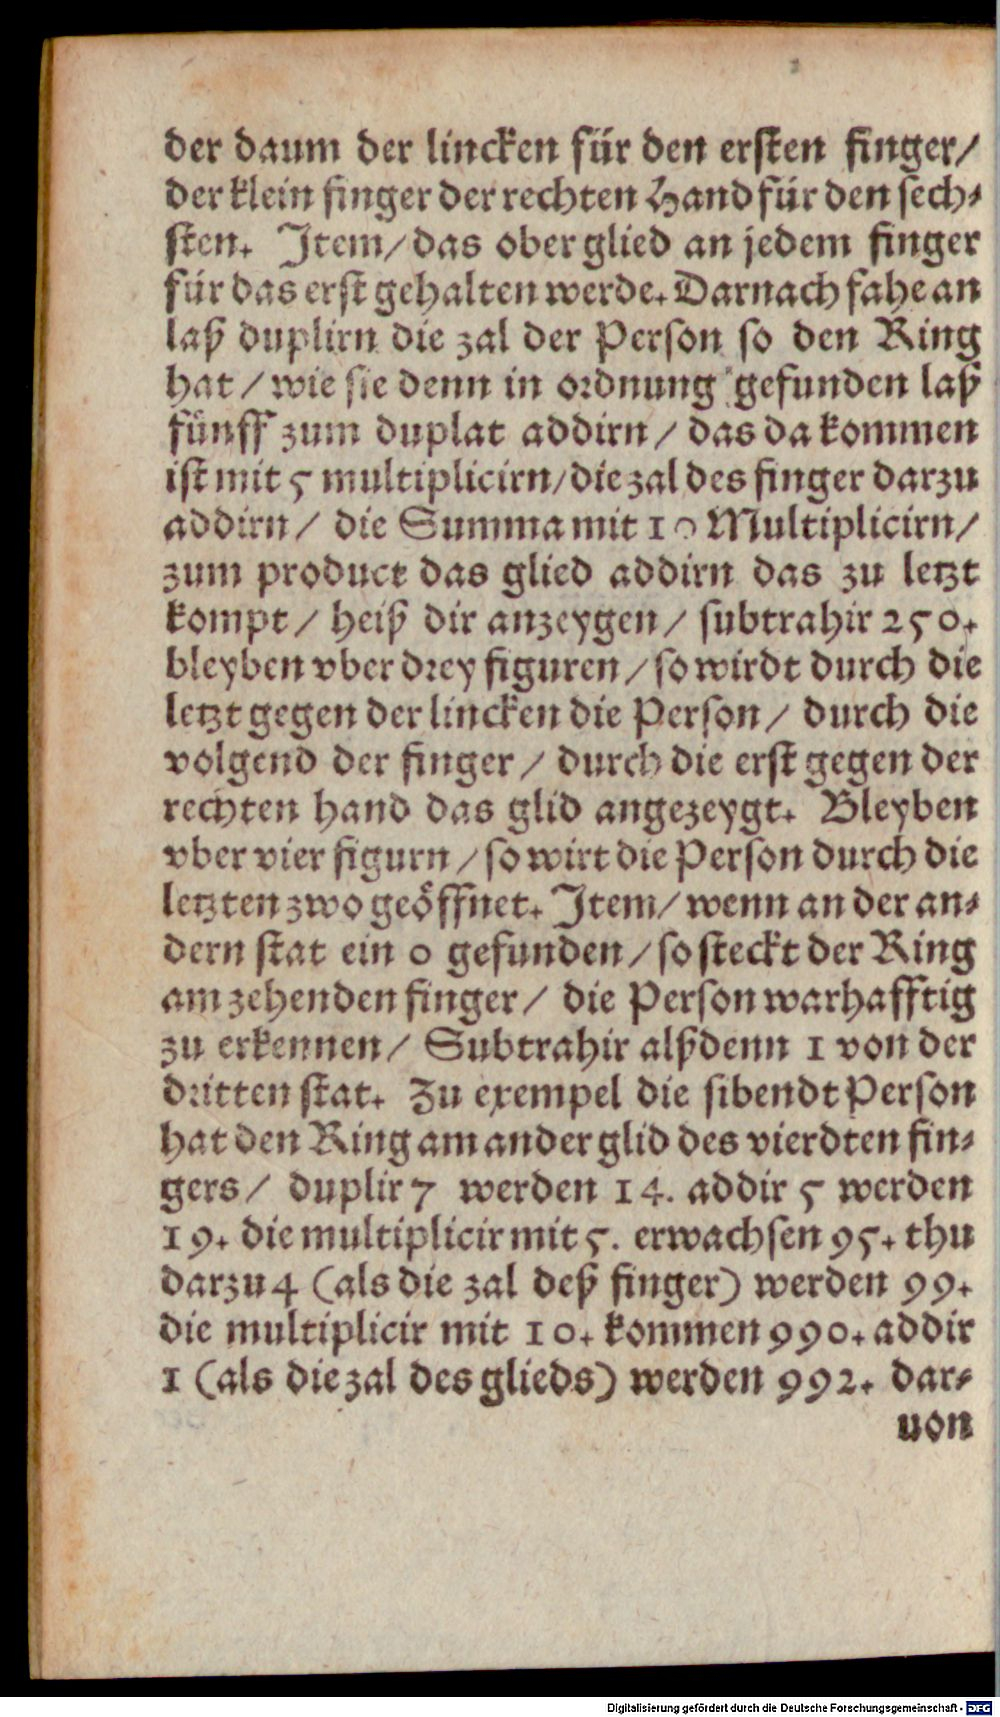 der daum der lincken für den ersten finger/
der klein finger der rechten Hand für den sech⸗
sten. Item/ das ober glied an jedem finger
für das erst gehalten werde. Darnach fahe an
laß duplirn die zal der Person so den Ring
hat / wie sie denn in ordnung gefunden laß
fünff zum duplat addirn / das da kommen
ist mit 5 multiplicirn/ die zal des finger darzu
addirn / die Summa mit 10 Multiplicirn/
zum product das glied addirn das zu letzt
kompt / heiß dir anzeygen / subtrahir 250.
bleyben vber drey figuren / so wirdt durch die
letzt gegen der lincken die Person / durch die
volgend der finger / durch die erst gegen der
rechten hand das glid angezeygt. Bleyben
vber vier figurn / so wirt die Person durch die
letzten zwo geöffnet. Item/ wenn an der an⸗
dern stat ein 0 gefunden / so steckt der Ring
am zehenden finger / die Person warhafftig
zu erkennen / Subtrahir alßdenn 1 von der
dritten stat. Zu exempel die sibendt Person
hat den Ring am ander glid des vierdten fin⸗
gers / duplir 7 werden 14. addir 5 werden
19. die multiplicir mit 5. erwachsen 95. thu
darzu 4 (als die zal deß finger) werden 99.
die multiplicir mit 10. kommen 990. addir
1 (als die zal des glieds) werden 992. dar⸗
uon
Digitalisierung gefördert durch die Deutsche Forschungsgemeinschaft - DFG